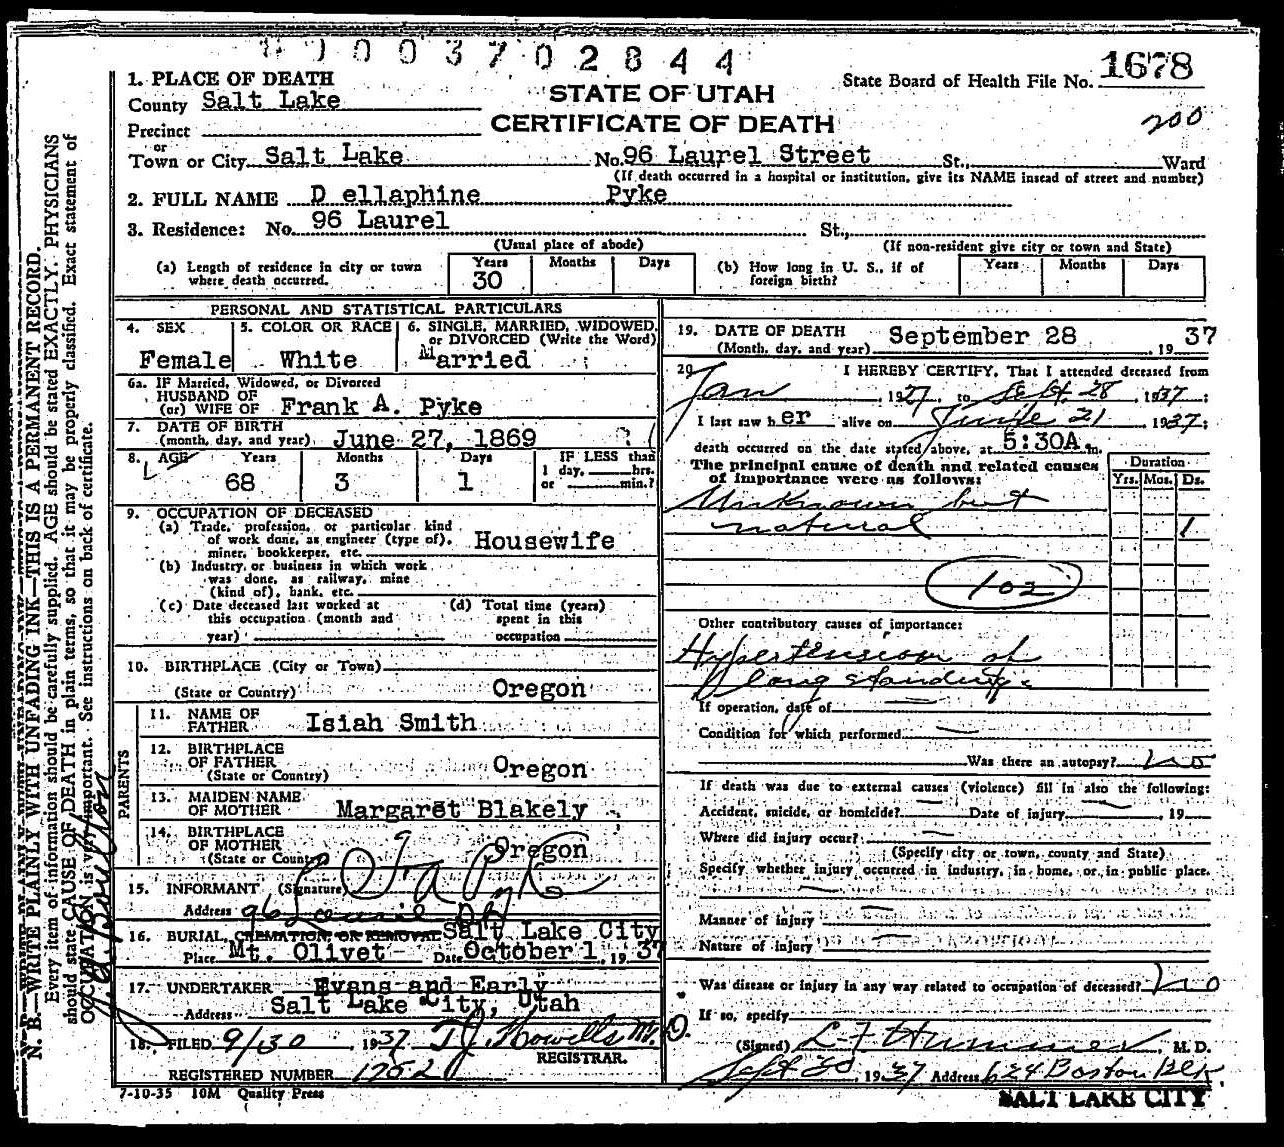 0003702844
1678
1. PLACE OF DEATH
State Board of Health File No.
County Salt Lake
STATE OF UTAH
200
CERTIFICATE OF DEATH
Precinct
or
Town or City Salt Lake No. 96 Laurel Street St., Ward
(If death occurred in a hospital or institution, give its NAME insead of street and number)
2. FULL NAME D ellaphine Pyke
3. Residence: No. 96 Laurel St.,
(Usual place of abode) (If non-resident give city or town and State)
(a) Length of residence in city or town where death occurred. Years 30 Months Days
(b) How long in U. S., if of foreign birth? Years Months Days
PERSONAL AND STATISTICAL PARTICULARS
4. SEX Female
5. COLOR OR RACE White
6. SINGLE, MARRIED, WIDOWED, or DIVORCED (Write the Word) Married
6a. IF Married, Widowed, or Divorced
HUSBAND OF
(or) WIFE OF Frank A. Pyke
7. DATE OF BIRTH
(month, day, and year) June 27, 1869
8. AGE Years 68 Months 3 Days 1 IF LESS than 1 day, hrs. or min.?
9. OCCUPATION OF DECEASED
(a) Trade, profession, or particular kind
of work done, as engineer (type of),
miner, bookkeeper, etc. Housewife
(b) Industry, or business in which work
was done, as railway, mine
(kind of), bank, etc.
(c) Date deceased last worked at
this occupation (month and
year)
(d) Total time (years)
spent in this
occupation
10. BIRTHPLACE (City or Town)
(State or Country) Oregon
PARENTS
11. NAME OF
FATHER Isiah Smith
12. BIRTHPLACE
OF FATHER
(State or Country) Oregon
13. MAIDEN NAME
OF MOTHER Margaret Blakely
14. BIRTHPLACE
OF MOTHER
(State or Country) Oregon
15. INFORMANT (Signature) F A Pyke
Address 96 Laurel
16. BURIAL, CREMATION, OR REMOVAL Salt Lake City
Place Mt. Olivet Date October 1, 1937
17. UNDERTAKER Evans and Early
Address Salt Lake City, Utah
18. FILED 9/30, 1937 T J Howells M. D.
REGISTRAR.
REGISTERED NUMBER 1752
7-10-35 10M Quality Press
19. DATE OF DEATH
(Month, day, and year) September 28 1937
20. I HEREBY CERTIFY, That I attended deceased from
Jan, 1927, to Sept. 28, 1937;
I last saw her alive on June 21 1937;
death occurred on the date stated above, at 5:30A.m.
The principal cause of death and related causes
of importance were as follows:
Duration
Yrs. Mos. Ds.
Unknown but
natural 1
102
Other contributory causes of importance:
Hypertension of
long standing.
If operation, date of
Condition for which performed
Was there an autopsy? no
If death was due to external causes (violence) fill in also the following:
Accident, suicide, or homicide? Date of injury 19
Where did injury occur?
(Specify city or town, county and State)
Specify whether injury occurred in industry, in home, or in public place.
Manner of injury
Nature of injury
Was disease or injury in any way related to occupation of deceased? no
If so, specify
(Signed) L. F Hummer, M. D.
Sept 30, 1937 Address 624 Boston Blk.
SALT LAKE CITY
N. B.—WRITE PLAINLY WITH UNFADING INK—THIS IS A PERMANENT RECORD.
Every item of information should be carefully supplied. AGE should be stated EXACTLY. PHYSICIANS
should state CAUSE OF DEATH in plain terms, so that it may be properly classified. Exact statement of
OCCUPATION is very important. See instructions on back of certificate.